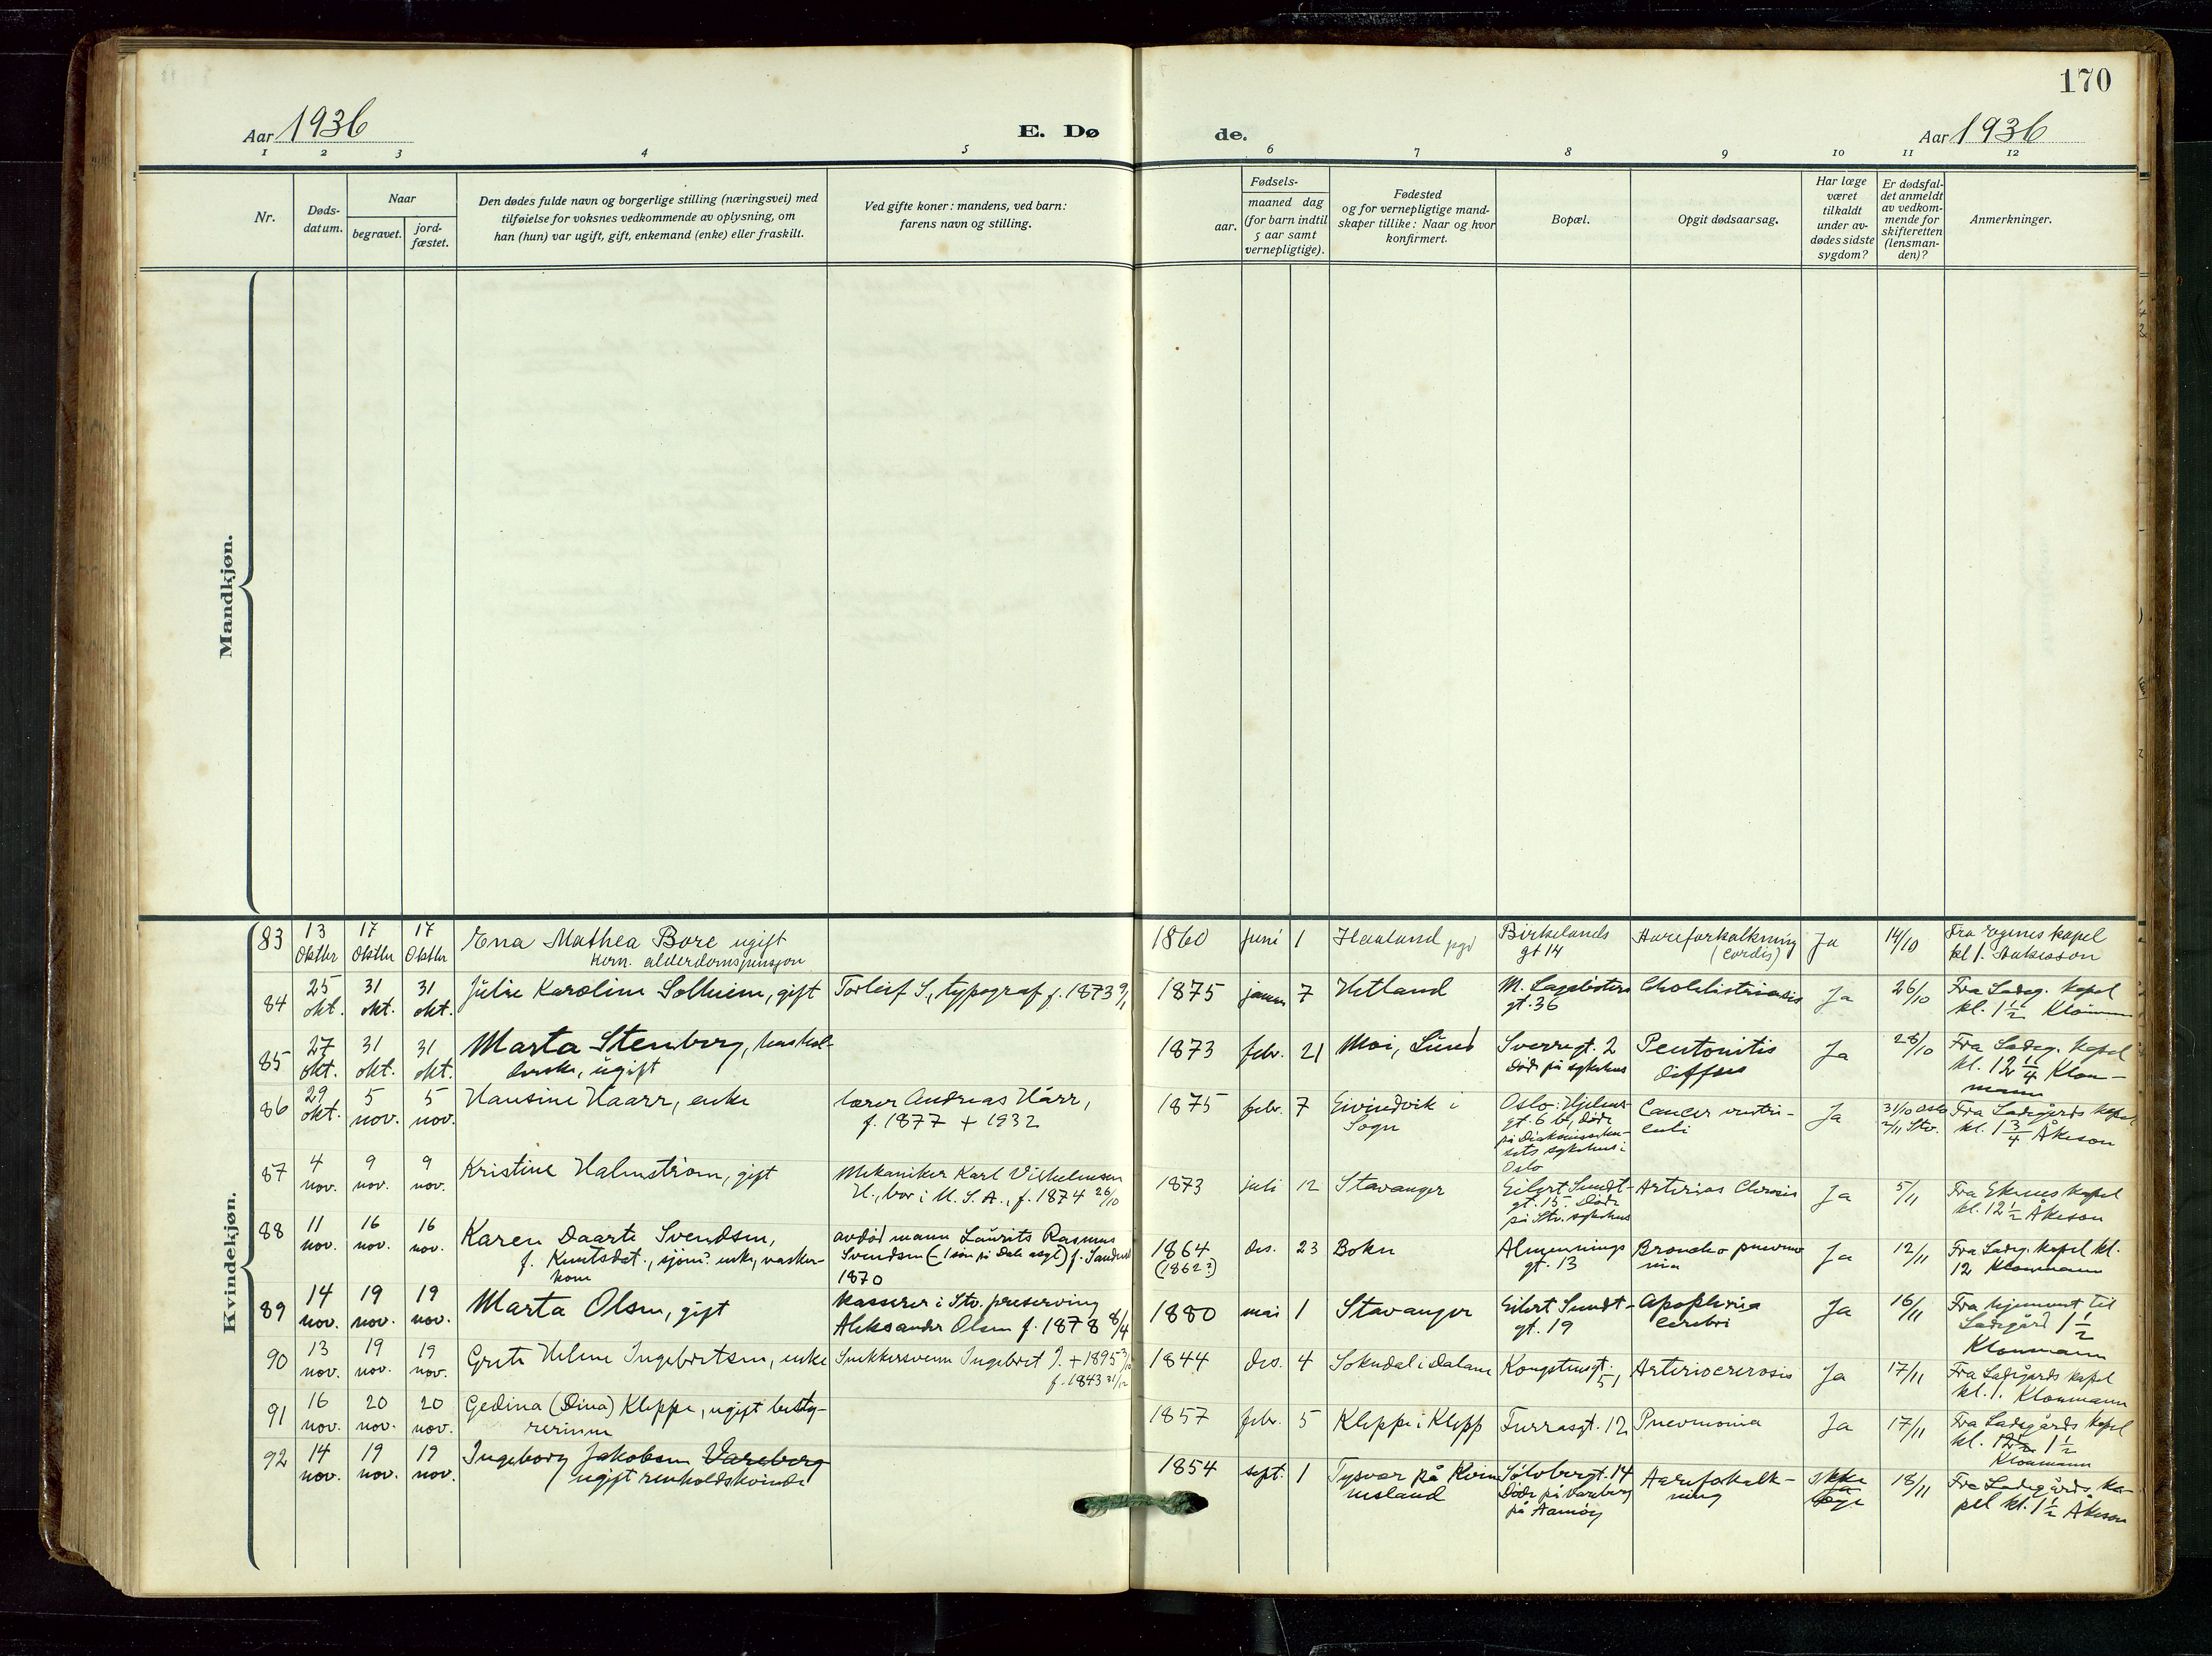 170
Aar 1936
E. Dø
de.
Aar 1936
1 2 3 4 5 6 7 8 9 10 11 12
Nr.
Døds-
datum.
Naar
begravet.
jord-
fæstet.
Den dødes fulde navn og borgerlige stilling (næringsvei) med
tilføielse for voksnes vedkommende av oplysning, om
han (hun) var ugift, gift, enkemand (enke) eller fraskilt.
Ved gifte koner: mandens, ved barn:
farens navn og stilling.
Fødsels-
aar.
maaned dag
(for barn indtil
5 aar samt
vernepligtige).
Fødested
og for vernepligtige mand-
skaper tillike: Naar og hvor
konfirmert.
Bopæl.
Opgit dødsaarsag.
Har læge
været
tilkaldt
under av-
dødes sidste
sygdom?
Er dødsfal-
det anmeldt
av vedkom-
mende for
skifteretten
(lensman-
den)?
Anmerkninger.
Mandkjøn.
Kvindekjøn.
83
13
Oktbr
17
Oktbr
17
Oktbr
Mathea Bore ugift
kom. alderdomspensjon
1860
juni
1
Haaland pgd
Birkelands
gt 14
Aareforkalkning
(Cordis)
Ja
14/10
Fra Egenes kapel
kl 1.
84
25
okt.
31
okt.
31
okt.
Julie Karoline Solheim, gift
Torleif S., typograf f. 1873 9/1
1875
januar
7
Hetland
M. Lagabøters
gt. 36
Ja
26/10
Fra Ladeg. kapel
kl. 1 1/2 Klonmann
85
27
okt.
31
okt.
31
okt.
Marta Stenberg, hushol-
derske, ugift
1873
febr.
21
Moi, Lund
Sverregt. 2
Død på sykehus
Peritonitis
diffus
Ja
28/10
Fra Ladeg. kapel
kl. 12 1/4 Klon-
mann
86
29
okt.
5
nov.
5
nov.
Hansine Haarr, enke
lærer Andreas Hårr,
f. 1877 + 1932
1875
febr.
7
Eivindvik i
Sogn
Oslo: Hjelms-
gt. 6 b, døde
på
sykehus i
Oslo
Cancer ventri-
culi
Ja
31/10 Oslo
2/11 Stv.
Fra Ladegårds kapel
kl. 1 3/4 Åkeson
87
4
nov.
9
nov.
9
nov.
Kristine Halmstrøm, gift
Mekaniker Karl Vilhelmsen
H., bor i U.S.A., f. 1874 26/10
1873
juli
12
Stavanger
Eilert Sundt-
gt. 15. Døde
på Stv. sykehus
Ja
5/11
Fra Ekenes kapel
kl. 12 1/2 Åkeson
88
11
nov.
16
nov.
16
nov.
Karen Daarte Svendsen,
f. Knutsdat., sjøm.s enke, vasker-
kone
avdød mann Laurits Rasmus
Svendsen (1 søn på Dale asyl) f. Sandeid
1870
1864
(1862?)
des.
23
Bokn
Almennings
gt. 13
Broncho pneumo
nia
Ja
12/11
Fra Ladeg. kapel kl.
12 Klonmann
89
14
nov.
19
nov.
19
nov.
Marta Olsen, gift
kasserer i Stv. preserving
Aleksander Olsen f. 1878 8/4
1880
mai
1
Stavanger
Eilert Sundt-
gt. 19
Apoplexia
Cerebri
Ja
16/11
Fra hjemmet til
Ladegård 1 1/2
Klonmann
90
13
nov.
19
nov.
19
nov.
Grete Helene Ingebretsen, enke
Snekkersvenn Ingebret I. + 1895
f. 1843 31/12
1844
des.
4
Sokndal i Dalane
Kongstensgt.
51
Ja
17/11
Fra Ladegårds kapel
kl. 1. Klonmann
91
16
nov.
20
nov.
20
nov.
Gedina (Dina) Kleppe, ugift besty-
rerinne
1857
febr.
5
Kleppe i Klepp
Furrasgt. 12
Pneumonia
Ja
17/11
Fra Ladegårds kapel
kl. 12 1/2 1 1/2
Klonmann
92
14
nov.
19
nov.
19
nov.
Ingeborg Jakobsen Vareberg
ugift renholdskvinde
1854
sept.
1
Tysvær på Kvin
nesland
Sølvbergt. 14
Døde på Vareberg
på Aamøy
Aareforkalk-
ning
ikke
Ja
læge
18/11
Fra Ladegårds ka-
pel kl. 1 1/2 Åkeson